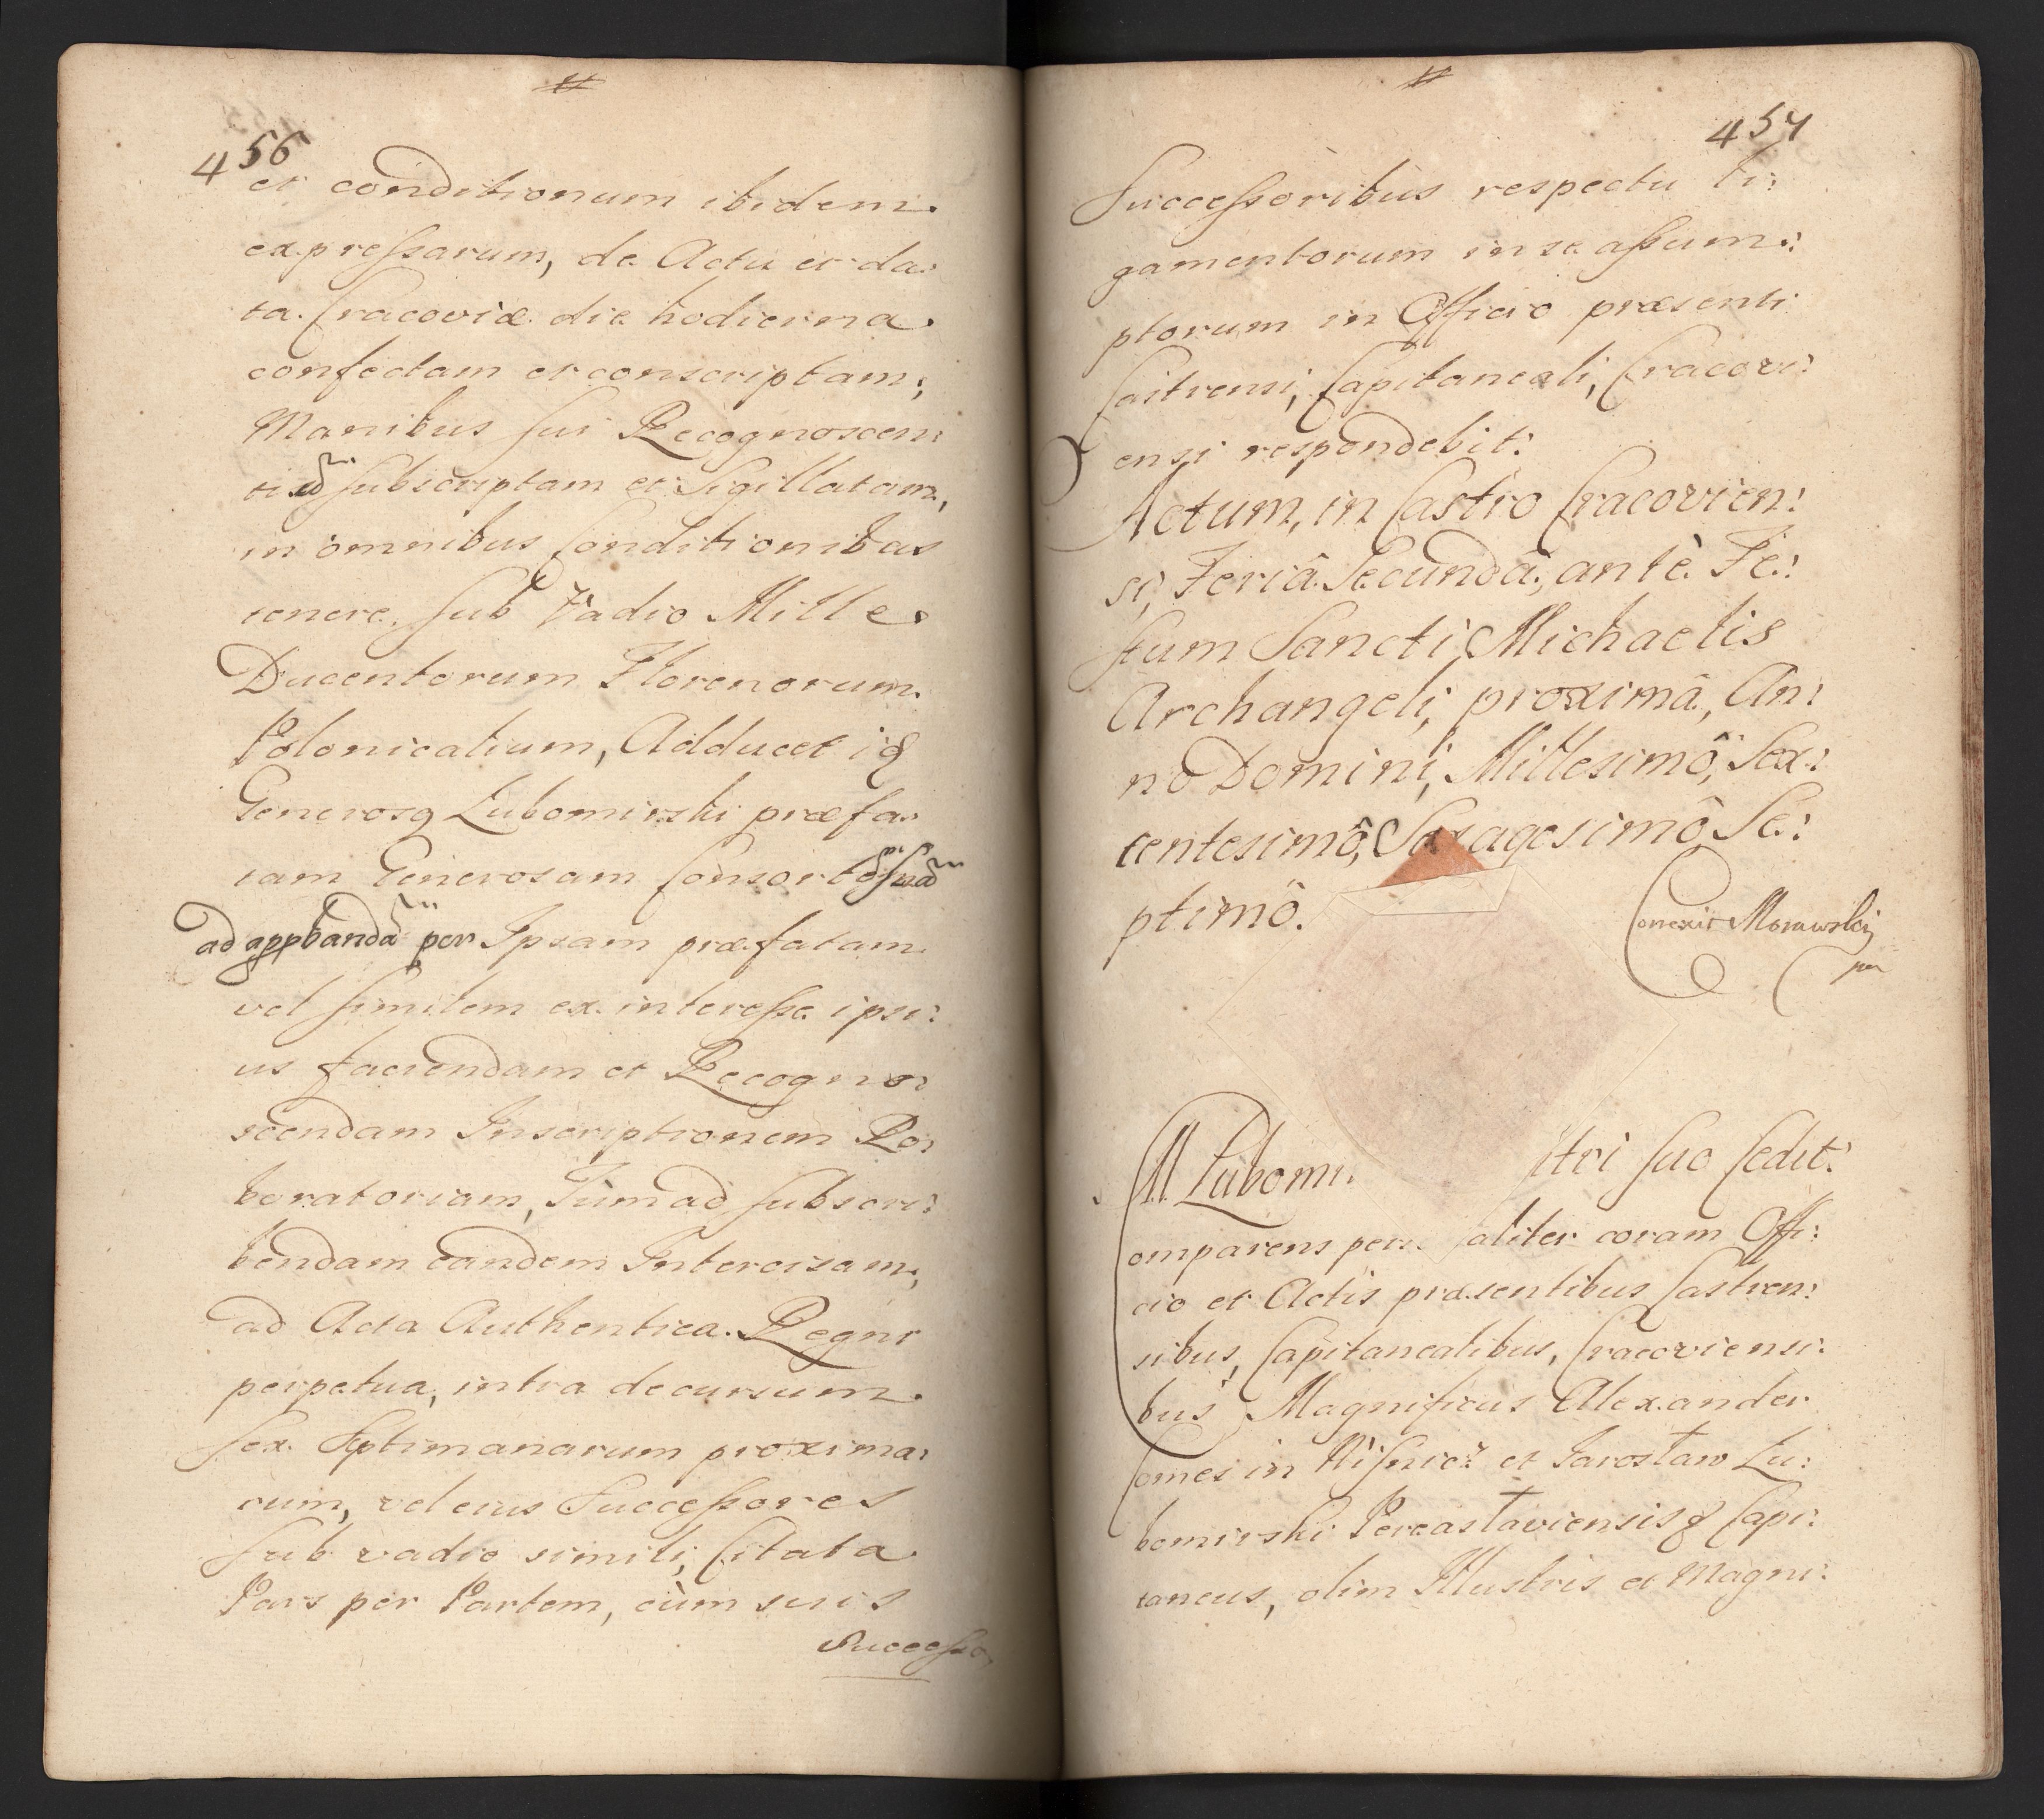 456
et conditionum ibidem
expressarum, de Actu et da:
ta Cracoviæ die hodierna
confectam et conscriptam,
Manibus sui Recognoscen:
tis subscriptam et Sigillatam,
in omnibus Conditionibus
tenere, sub Vadio Mille
Ducentorum Florenorum
Polonicalium, Adducet iq
Generosq Lubomirski præfa:
tam Generosam Consortē suā
ad appbandā per Ipsam præfatam
vel similem ex interesse ipsi:
us faciendam et Recogno
scendam Inscriptionem Ro:
boratoriam, Tum ad subscri:
bendam eandem Intercisam,
ad Acta Authentica Regni
perpetua, intra decursum
sex Septimanarum proxima:
rum, vel eius Successores
sub vadio simili, Citata
Pars per Partem, cùm suis
Successo
457
Successoribus respectu li:
gamentorum in se assum:
ptorum in Officio præsenti
Castrensi, Capitaneali, Cracovi:
ensi respondebit:
Actum, in Castro Cracovien:
si, Feriâ Secundâ, antè Fe:
stum Sancti Michaelis
Archangeli, proximâ, An:
no Domini, Millesimô, Sex:
centesimô, Sexagesimô Se:
ptimô.
Conexit Morawski
mp
M Lubomi stri suo Cedit:
omparens per aliter coram Offi:
cio et Actis præsentibus Castren:
sibus, Capitanealibus, Cracoviensi:
bus Magnificus Alexander
Comes in Wiśnicz et Jarosław Lu:
bomirski Pereasłaviensisq Capi:
taneus, olim Illustris et Magni: